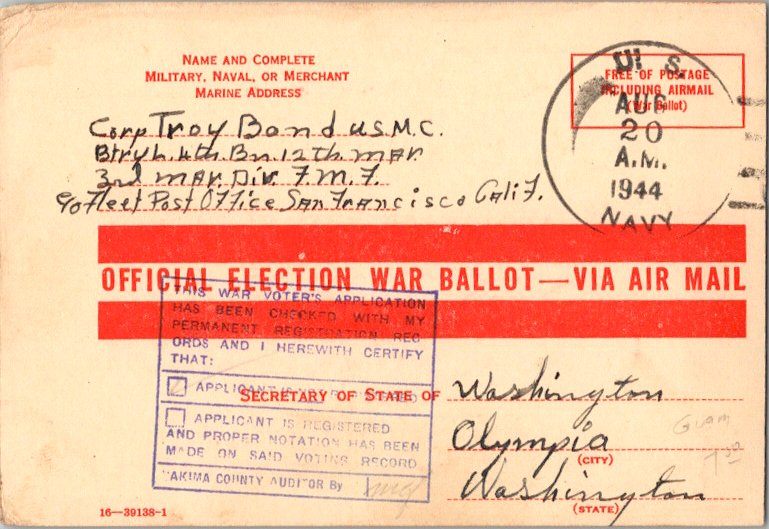 NAME AND COMPLETE
MILITARY, NAVAL, OR MERCHANT
MARINE ADDRESS
Corp Troy Bond U.S.M.C.
Btry L. 4th. Bn. 12th. mar.
3rd mar. Div. F.M.F.
c/o Fleet Post Office San Francisco Calif.
FREE OF POSTAGE
INCLUDING AIRMAIL
(War Ballot)
U. S.
AUG
20
A.M.
1944
NAVY
OFFICIAL ELECTION WAR BALLOT—VIA AIR MAIL
THIS WAR VOTER'S APPLICATION
HAS BEEN CHECKED WITH MY
PERMANENT REGISTRATION REC
ORDS AND I HEREWITH CERTIFY
THAT:
APPLICANT IS NOT REGISTERED
APPLICANT IS REGISTERED
AND PROPER NOTATION HAS BEEN
MADE ON SAID VOTING RECORD
YAKIMA COUNTY AUDITOR By
SECRETARY OF STATE OF Washington
Olympia
(CITY)
Washington
(STATE)
Guam
16—39138-1